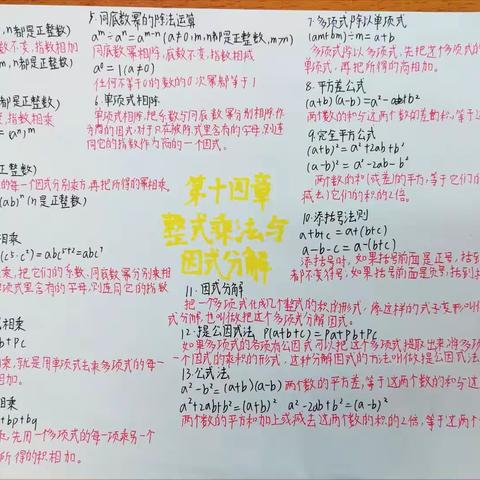 ,n都是正整数)
数不变,指数相加
m,n都是正整数)
都是正整数)
变,指数相乘
=(aⁿ)ᵐ
正整数)
的每一个因式分别乘方,再把所得的幂相乘。
(ab)ⁿ (n是正整数)
相乘
(c⁵·c²)=abc⁵⁺²=abc⁷
乘,把它们的系数、同底数幂分别相乘
单项式里含有的字母,则连同它的指数
式相乘
b+pc
相乘,就是用单项式去乘多项式的每一
相加。
相乘
+bp+bq
乘,先用一个多项式的每一项乘另一个
所得的积相加。
5.同底数幂的除法运算
aᵐ÷aⁿ=aᵐ⁻ⁿ (a≠0,m,n都是正整数,m>n)
同底数幂相除,底数不变,指数相减
a⁰=1(a≠0)
任何不等于0的数的0次幂都等于1
6.单项式相除
单项式相除,把系数与同底数幂分别相除作
为商的因式,对于只在被除式里含有的字母,则连
同它的指数作为商的一个因式。
第十四章
整式乘法与
因式分解
7.多项式除以单项式
(am+bm)÷m=a+b
多项式除以多项式,先把这个多项式的
单项式,再把所得的商相加。
8.平方差公式
(a+b)(a-b)=a²-b²
两个数的和与这两个数的差的积,等于这
9.完全平方公式
(a+b)²=a²+2ab+b²
(a-b)²=a²-2ab-b²
两个数的和(或差)的平方,等于它们的
减去)它们的积的2倍。
10.添括号法则
a+b+c=a+(b+c)
a-b-c=a-(b+c)
添括号时,如果括号前面是正号,括到
都不变符号;如果括号前面是负号,括到括
11.因式分解
把一个多项式化成几个整式的积的形式,像这样的式子变形叫
式分解,也叫做把这个多项式分解因式。
12.提公因式法 p(a+b+c)=pa+pb+pc
如果多项式的各项有公因式,可以把这个多项式提取出来,将多项
一个因式的乘积的形式,这种分解因式的方法叫做提公因式法
13.公式法
a²-b²=(a+b)(a-b) 两个数的平方差,等于这两个数的和与这
a²+2ab+b²=(a+b)² a²-2ab+b²=(a-b)²
两个数的平方和加上或减去这两个数的积的2倍,等于这两个